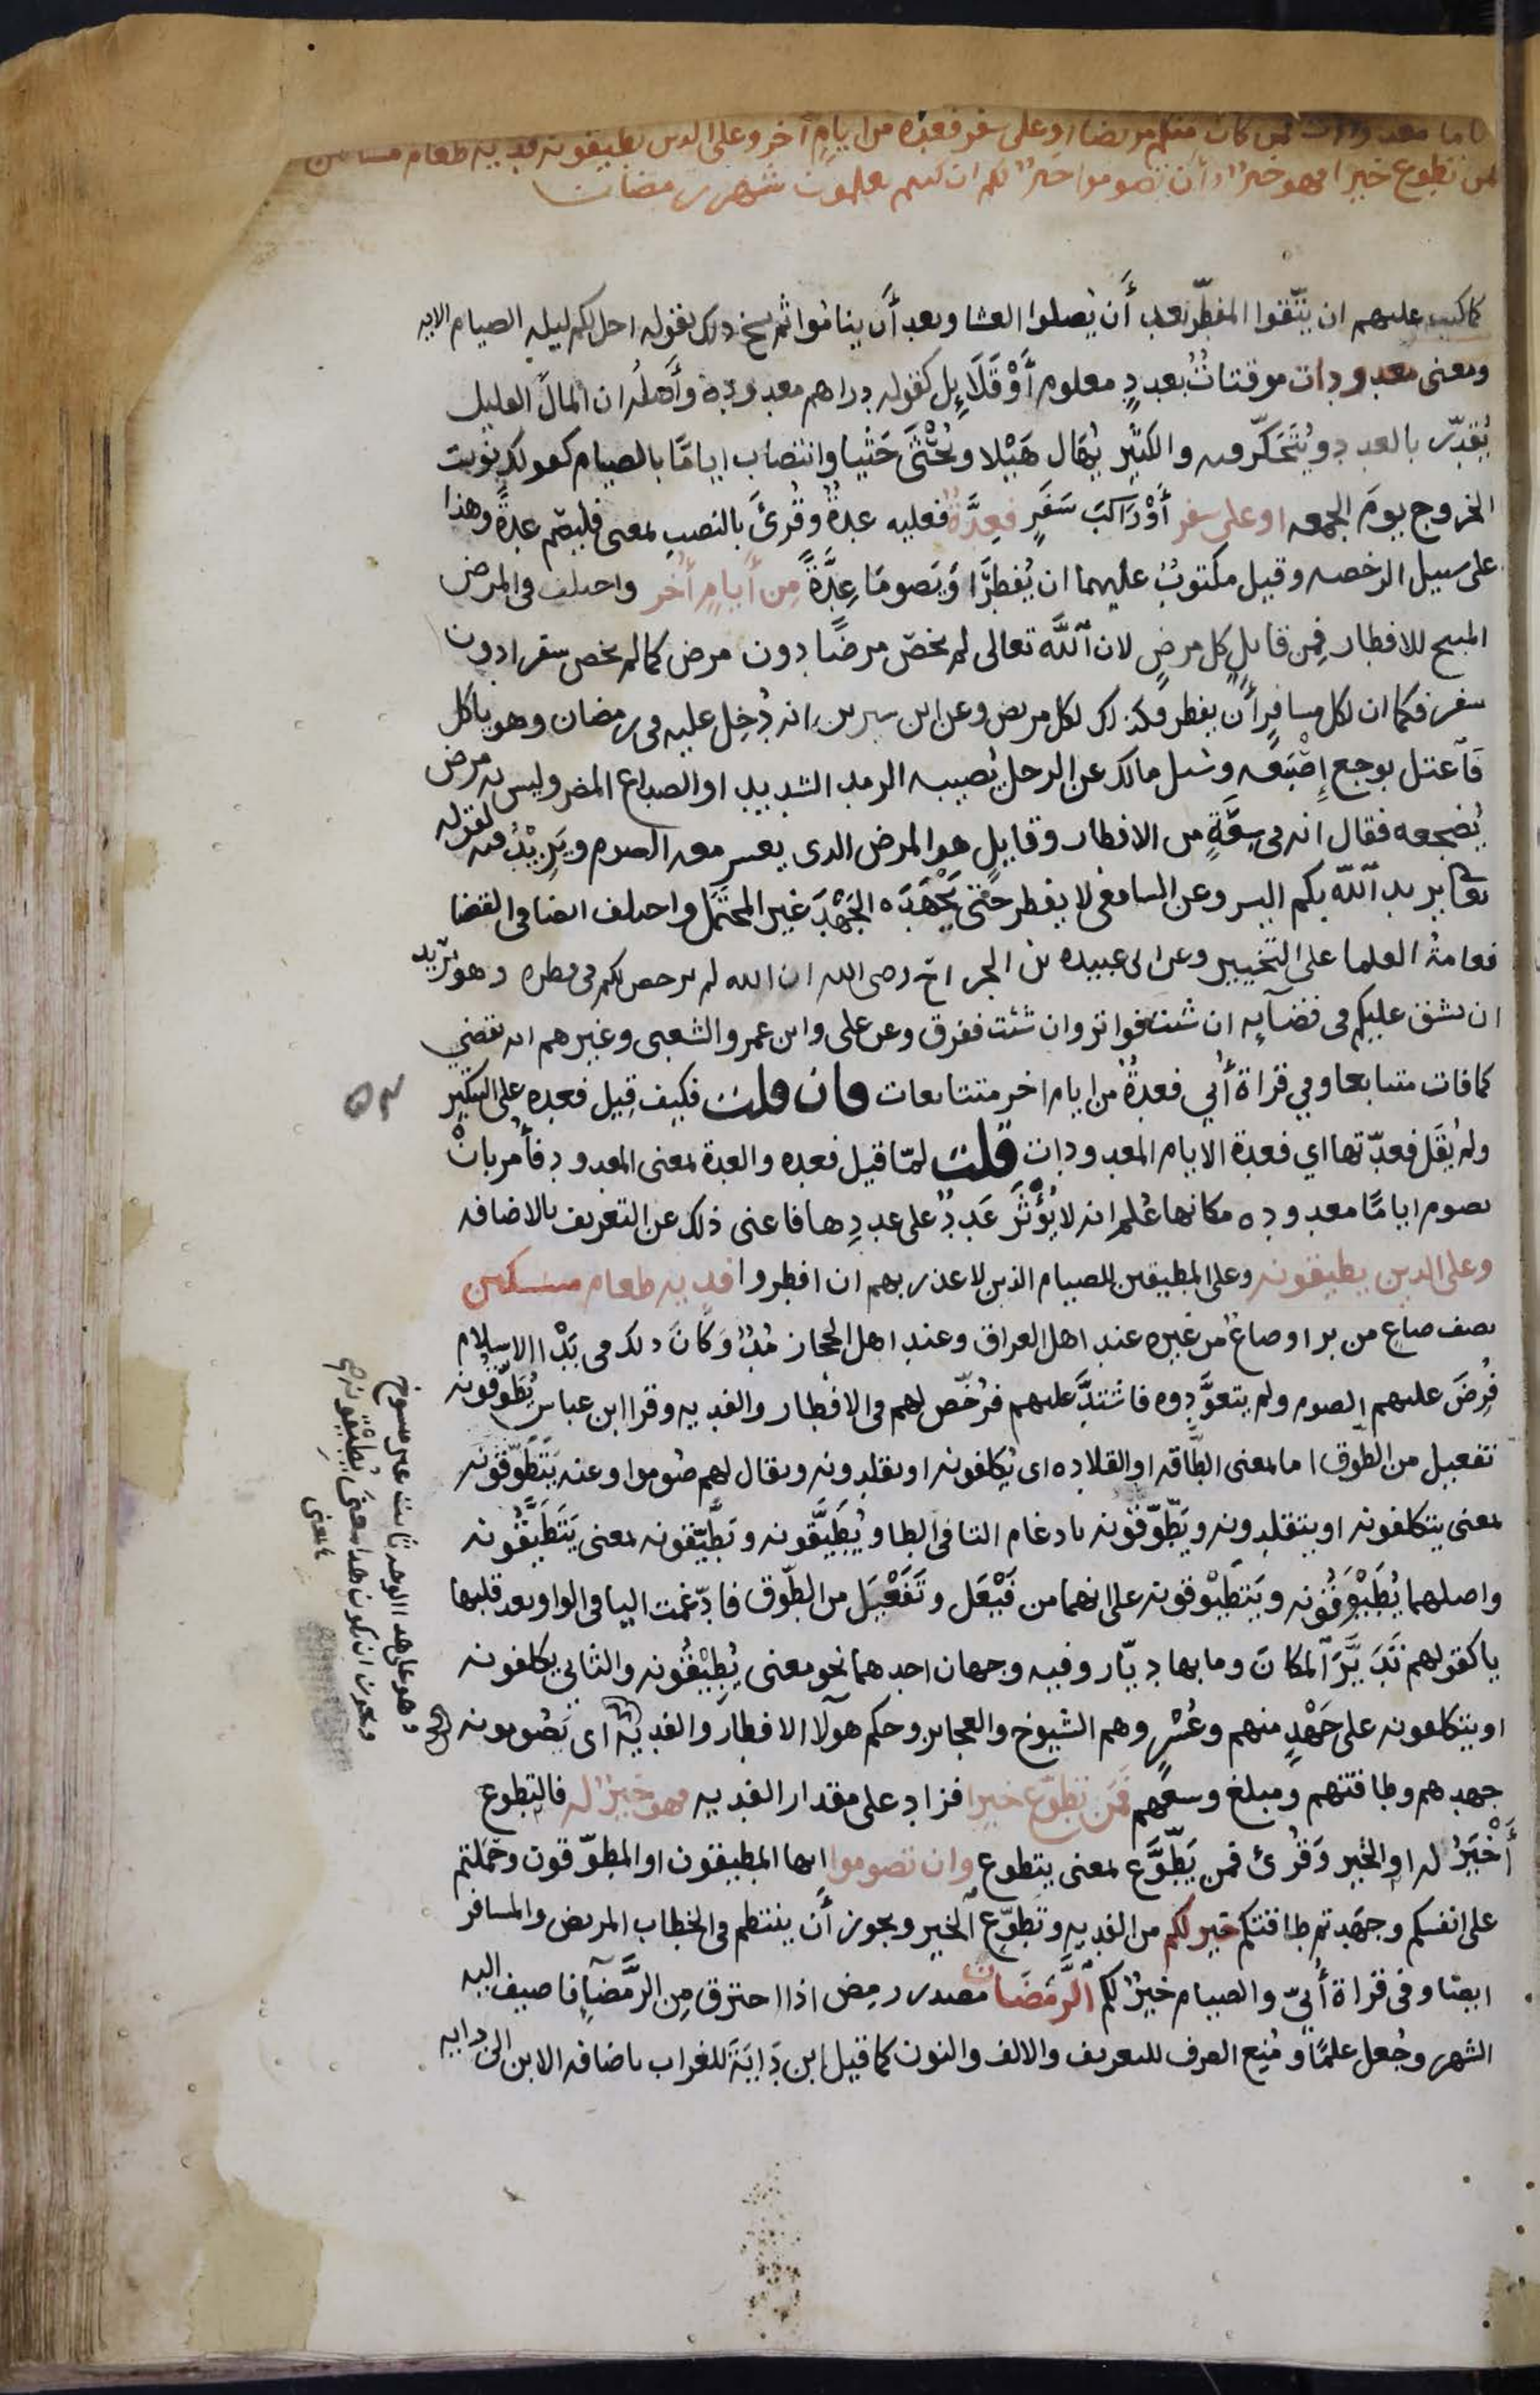 اياما معدودات فمن كان منكم مريضا او على سفر فعدة من ايامٍ اخر وعلى الدين يطيقونه فدية طعام مساكين
فمن تطوع خيرا فهو خيرٌ له وأن تصوموا خيرٌ لكم ان كنتم تعلمون شهر رمضان
كما كتب عليهم ان يتّقوا المفطّر بعد أَن يُصلوا العشا وبعد أَن يناموا ثم نسخ ذلك بقوله احل لكم ليلة الصيام الايه
ومعنى معدودات موقتاتٌ بعددٍ معلوم أَوْ قَلَايِل كقوله دراهم معدوده وأَصلُه ان المالَ القليل
يُقدّر بالعدد ويُتَحَكّر فيه والكثير يُهال هَيْلا ويُحْثَى حَثْيا وانتصاب اياما بالصيام كقولك نويت
الخروج يومَ الجمعه او على سفر أَوْ رَاكبَ سَفَرٍ فعِدَّةٌ فعليه عدةٌ وقُرئَ بالنصب بمعنى فليصم عدةً وهذا
على سبيل الرخصه وقيل مكتوبٌ عليهما ان يُفطِرَا وَيَصومَا عِدَّةً مِن أَيامٍ أُخَر واختلف في المرض
المبيح للافطار فمِن قايلٍ كل مرضٍ لان اللَّه تعالى لم يخصّ مرضًا دون مرض كما لم يخص سفرا دون
سفر فكما ان لكل مسافرٍ أَن يفطر فكذلك لكل مريض وعن ابن سيرين انه دُخِل عليه في رمضان وهو ياكل
فَاعتل بوجع إِصْبَعه وسئل مالك عن الرجل يُصيبه الرمد الشديد او الصداع المضر وليس به مرض
يُضجعه فقال انه في سِعَةٍ من الافطار وقايلٍ هو المرض الدى يعسر معه الصوم ويَزِيْدُ فيه لقوله
تعالى يريد اللّه بكم اليسر وعن الشافعى لا يفطر حتى يَجْهَدَه الجَهْدَ غير المحتَمَل واختلف ايضا في القضا
فعامةُ العلما على التخيير وعن ابى عبيده بن الجراح رضى الله ان الله لم يرخص لكم في فطره وهو يُرِيد
ان يشق عليكم في قضآيِه ان شئت فواتر وان شئت ففرق وعن على وابن عمر والشعبى وغيرهم انه يقضي
كما فات متتابعا وفي قراة أُبي فعدةٌ من ايام اخر متتابعات فان قلت فكيف قِيل فعده على التنكير
ولم يُقَل فعدّتها اي فعدة الايام المعدودات قلت لمّا قيل فعده والعدة بمعنى المعدود فأُمر بانْ
يصوم اياما معدوده مكانها عُلم انه لا يُؤْثَر عَددٌ على عددِها فاغنى ذلك عن التعريف بالاضافه
وعلى الدين يطيقونه وعلى المطيقين للصيام الذين لا عذر بهم ان افطروا فديه طعام مسكين
نصف صاعٍ من بر او صاعٌ من غيره عند اهل العراق وعند اهل الحجاز مُدٌّ وَكَانَ ذلك في بَدْاِ الاسلام
فُرِضَ عليهم الصوم ولم يتعوَّدوه فاشتدَّ عليهم فرُخّص لهم في الافطار والفديه وقرا ابن عباس يُطَوَّقُونه
تفعيل من الطوق اما بمعنى الطاقه او القلاده اى يُكلفونه او يقلدونه ويقال لهم صُوموا وعنه يَتَطَوَّقونه
بمعنى يتكلفونه او يتقلدونه ويَطَّوّقونه بادغام التا في الطا ويُطَيَّقونه ويَطَّيّقونه بمعنى يَتَطَيَّقُونه
واصلهما يُطَيْوَقُونه ويَتَطَيْوَقونه على انهما من فَيْعَل وتَفَعْيَل من الطَّوق فادّغمت اليا في الواو بعد قلبها
يا كقولهم تَدَيَّرَ المكانَ وما بها ديّار وفيه وجهان احدهما نحو معنى يُطِيْقُونه والثاني يكلفونه
او يتكلفونه على جَهْدٍ منهم وعُسْرٍ وهم الشيوخ والعجايز وحكم هولآ الافطار والفديه اى يَصُومونه
جهدهم وطاقتهم ومبلغ وسعهم فَمَن تطوّع خيرا فزاد على مقدار الفديه فهو خيرٌ له فالتطوع
أَخْيَرُ له او الخير وَقُرئ فمن يَطَّوَّع بمعنى يتطوع وان تصوموا ايها المطيقون او المطوّقون وحَمَلتم
على انفسكم وجهَدتم طاقتكم خير لكم من الفديه وتطوّع الخير ويجوز أَن ينتظم في الخطاب المريض والمسافر
ايضا وفى قراة أُبىّ والصيام خيرٌ لكم الرَّمَضَان مصدر رمِض اذا احترق مِن الرَّمضآِ فاضيف اليه
الشهر وجُعل علمًا ومُنِع الصرف للتعريف والالف والنون كما قيل ابن دَايَةَ للغراب باضافه الابن الى دايه
وهو على هدا الوجه ثابت غير منسوخ
ويجوز ان يكون هدا معنى يُطيْقُونه اى